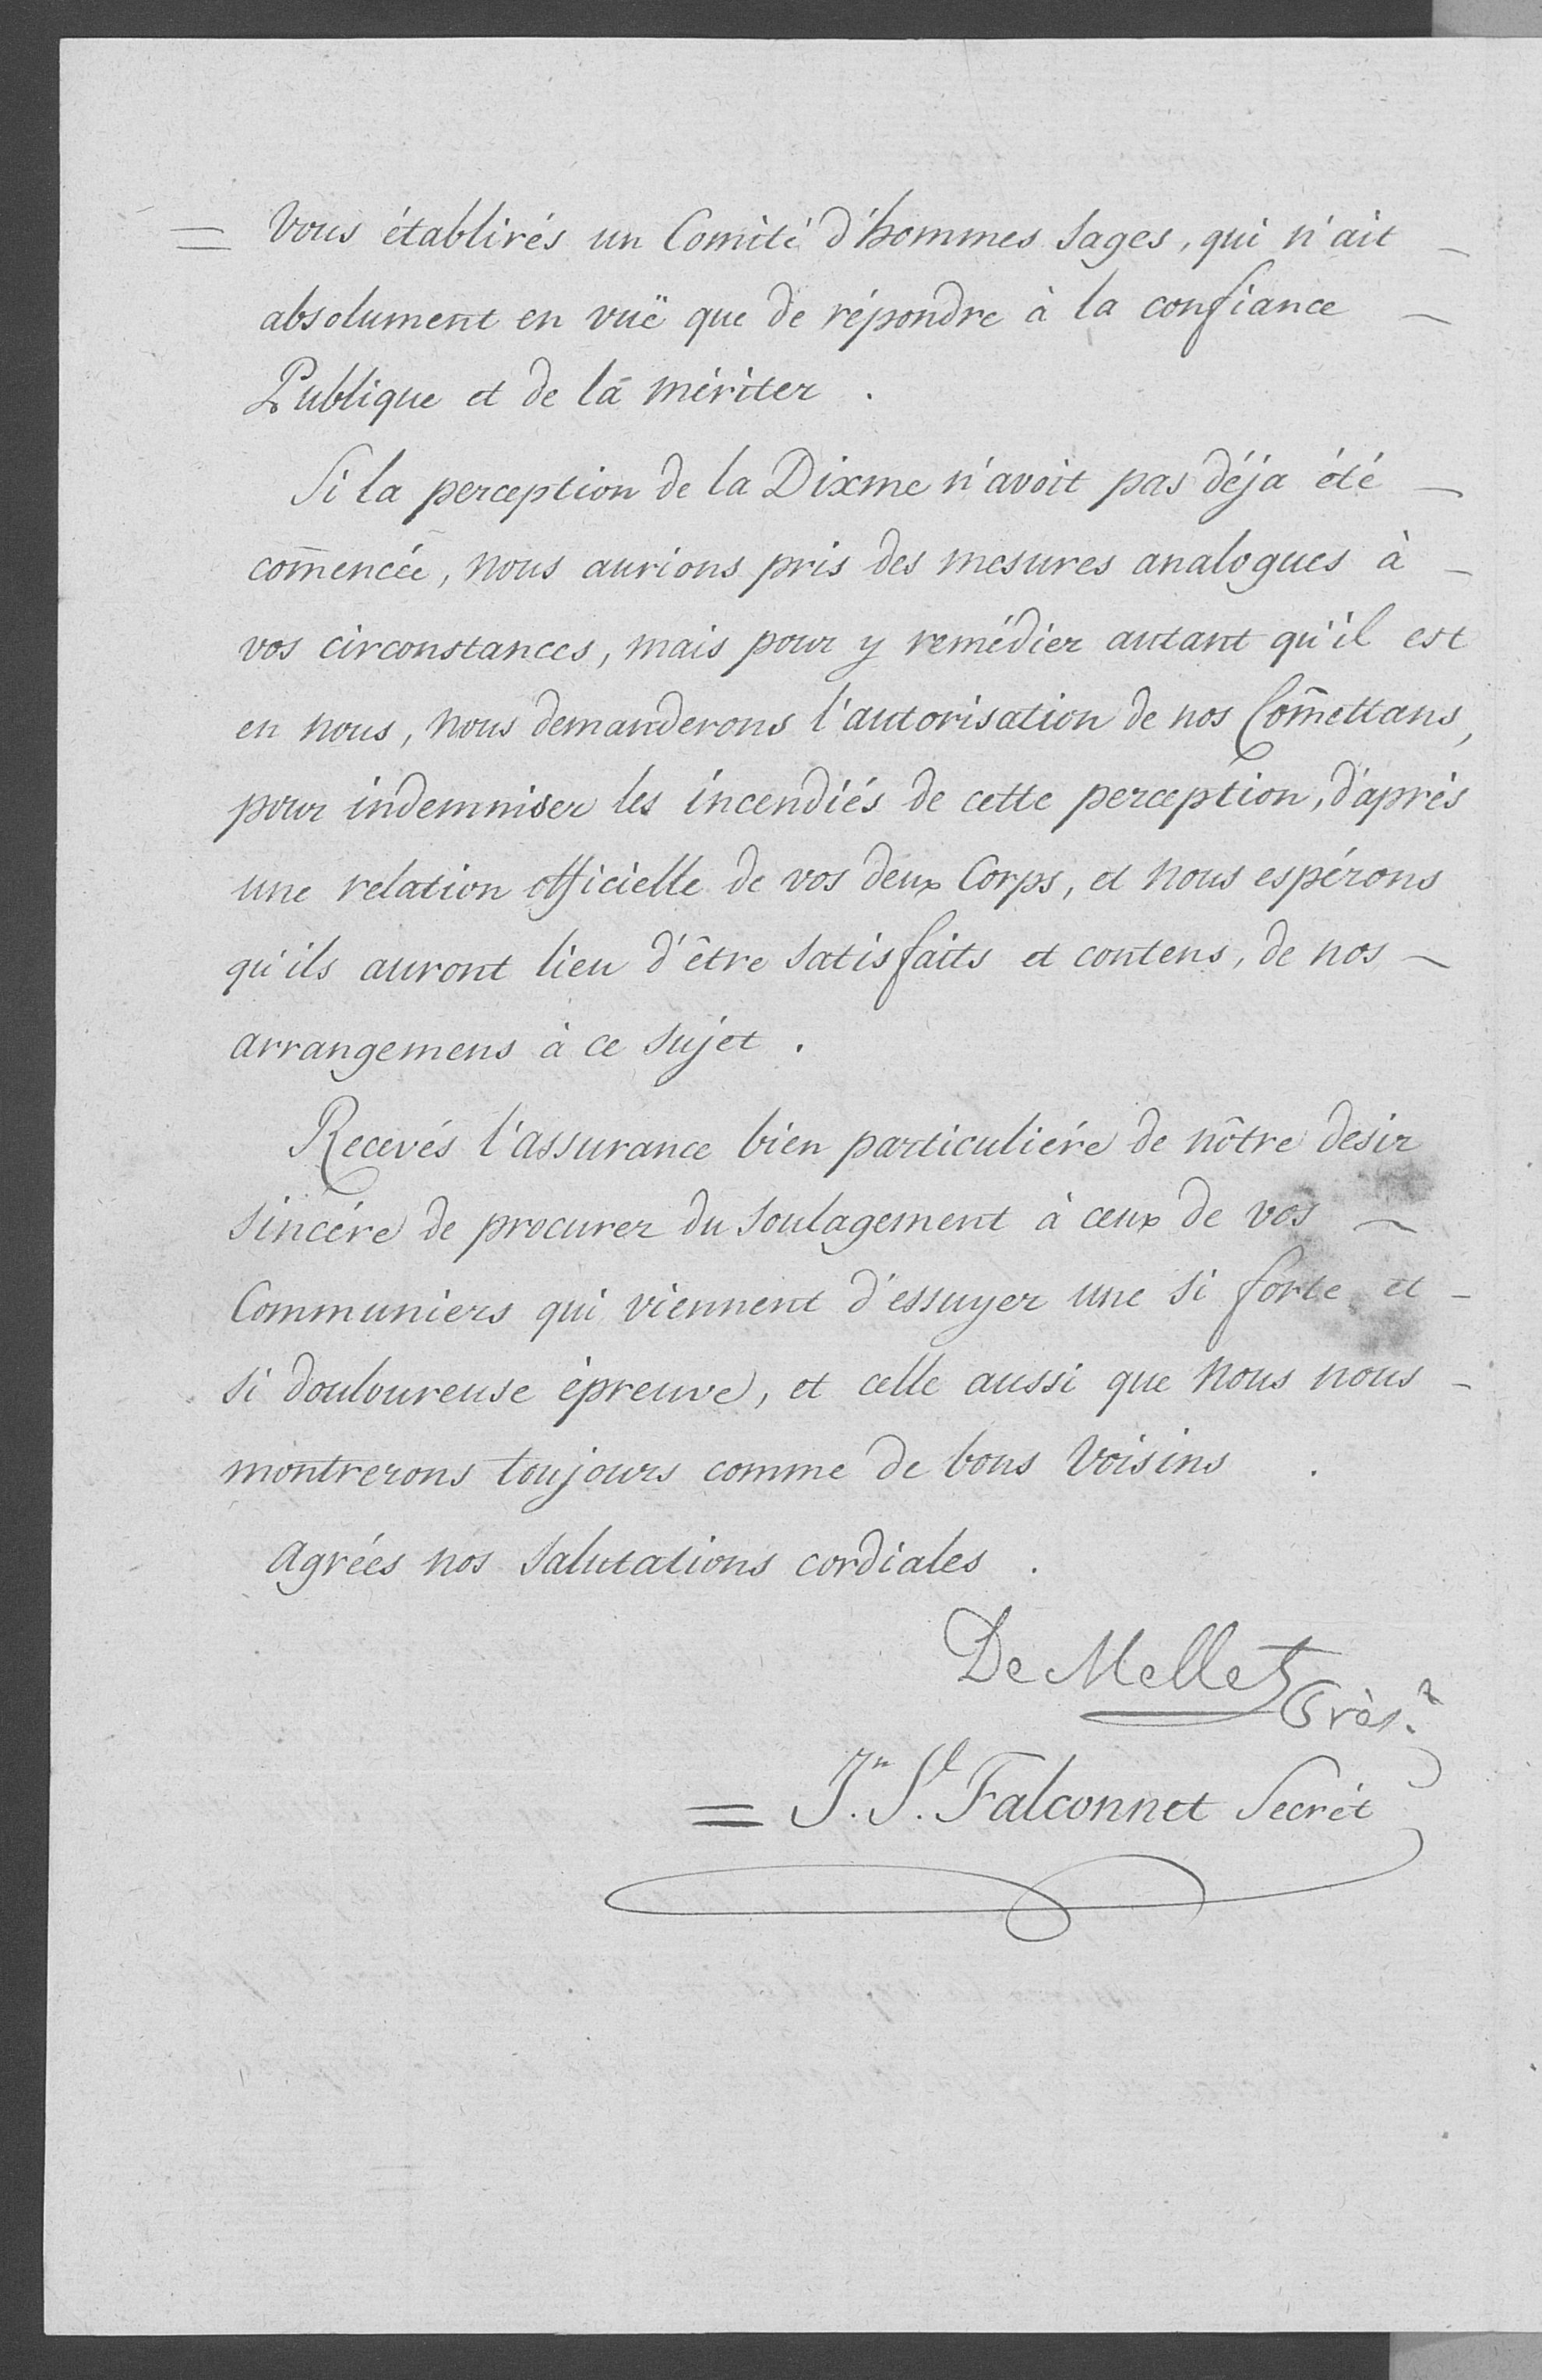 = Vous établirés un Comité d'hommes sages, qui n'ait -
absolument en vuë que de répondre à la confiance -
Publique et de la mériter .
Si la perception de la Dixme n'avoit pas déja été -
com̄encée, nous aurions pris des mesures analogues à -
vos circonstances, mais pour y remédier autant qu'il est
en nous, nous demanderons l'autorisation de nos Com̄ettans,
pour indemniser les incendiés de cette perception, d'aprés
une relation officielle de vos deux Corps, et nous espérons
qu'ils auront lieu d'être satisfaits et contens, de nos -
arrangemens à ce sujet .
Recevés l'assurance bien particuliére de nôtre desir
sincére de procurer du soulagement à ceux de vos -
Communiers qui viennent d'essuyer une si forte et -
si douloureuse épreuve, et celle aussi que nous nous -
montrerons toujours comme de bons Voisins .
Agrées nos salutations cordiales .
De Mellet
= Jn. Sl. Falconnet Secrét